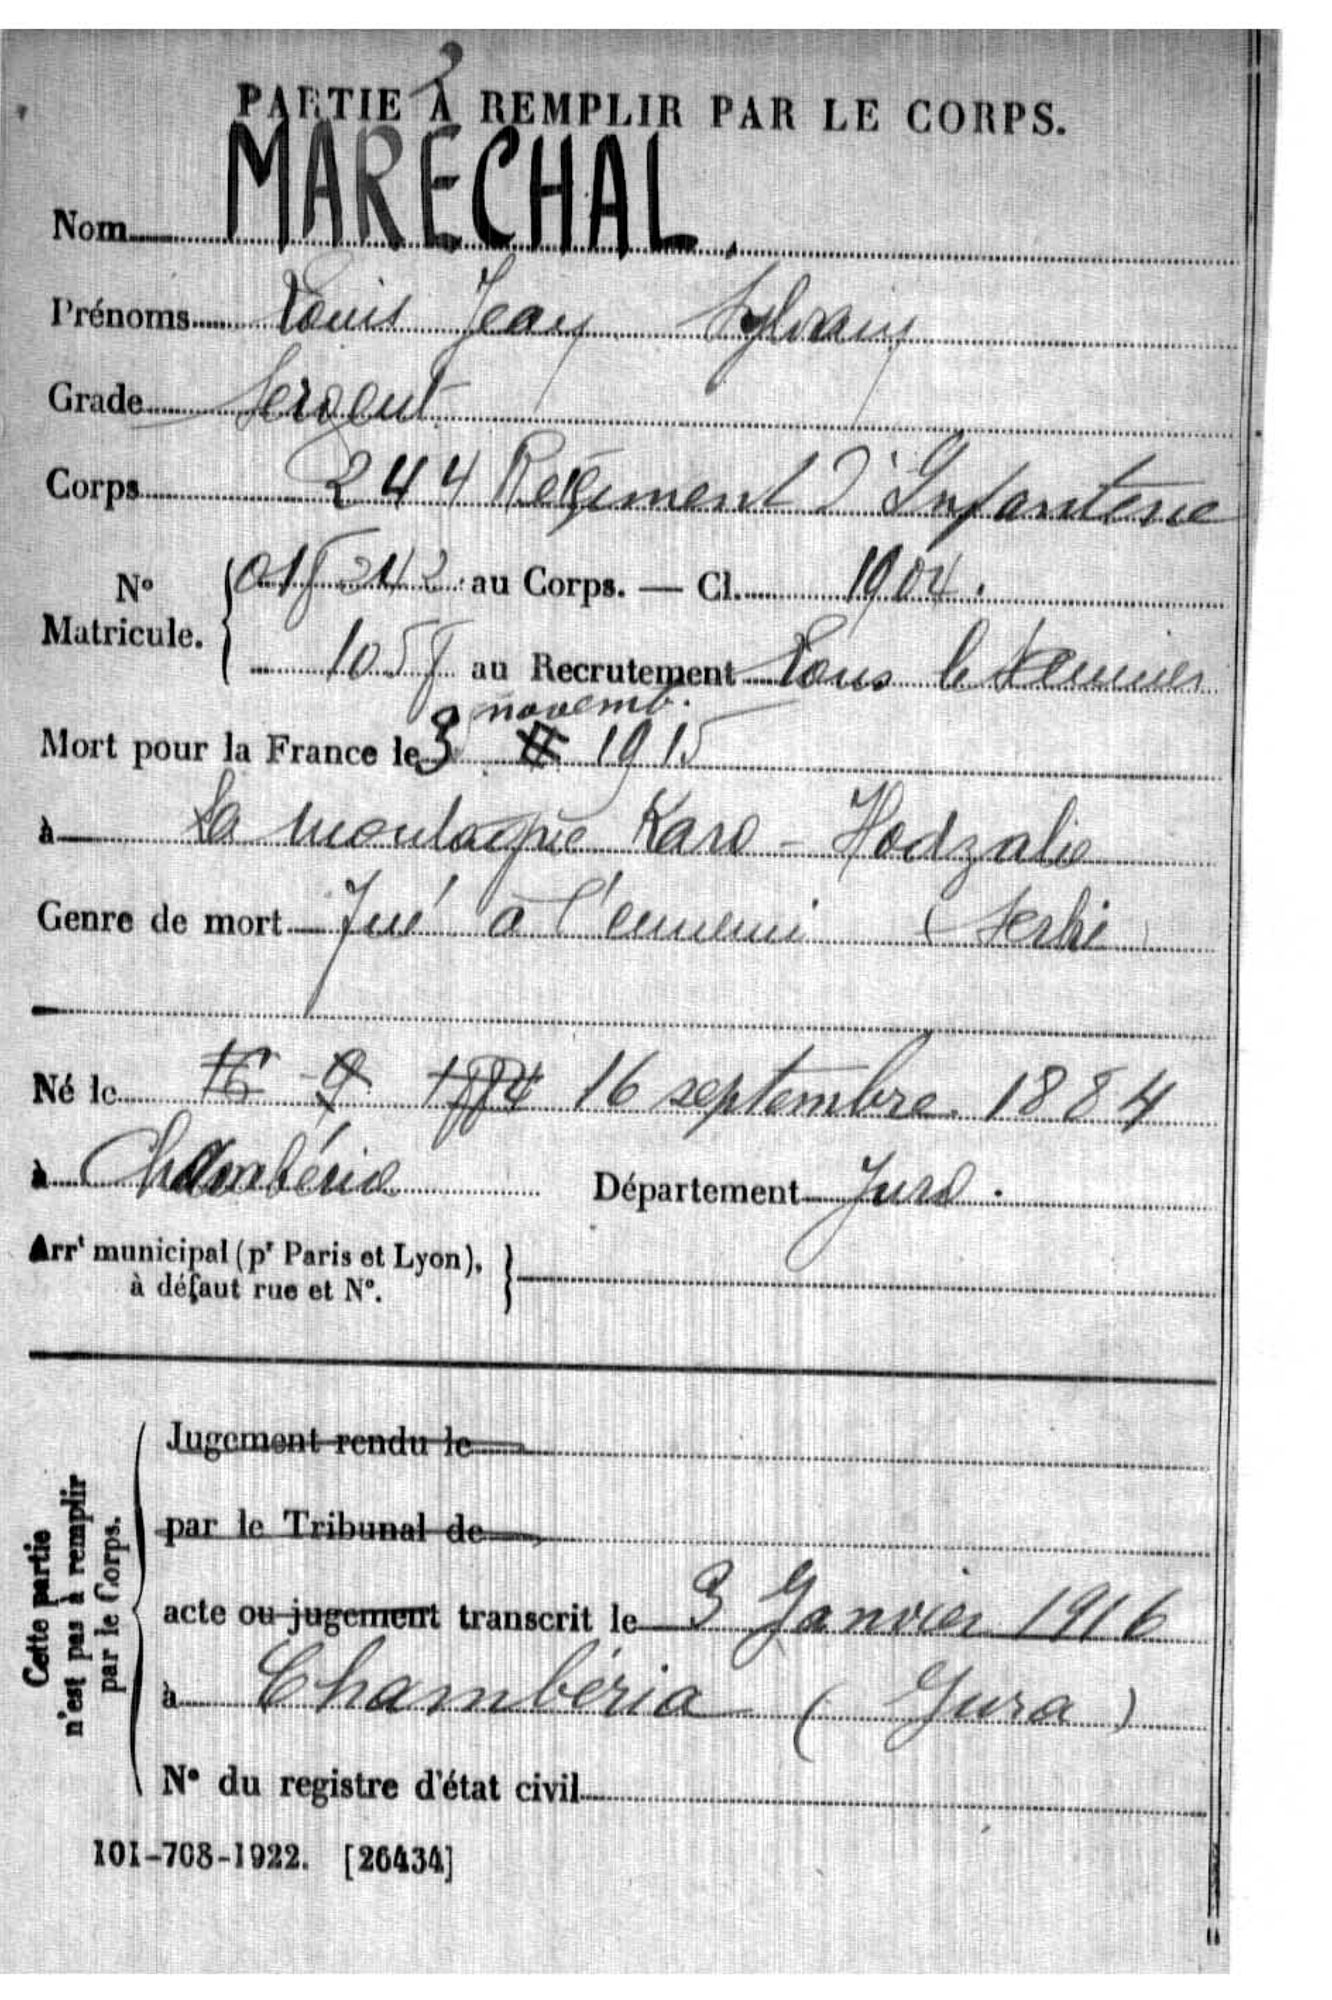 PARTIE À REMPLIR PAR LE CORPS.
Nom MARECHAL
Prénoms Louis Jean Sylvain
Grade Sergent
Corps 244 Régiment d'Infanterie
N° Matricule. 018242 au Corps. — Cl. 1904.
1058 au Recrutement Lons le Saunier
novemb.
Mort pour la France le 3 11 1915
à La montagne Kara-Hodzalie
Genre de mort Tué à l'ennemi (Serbie)
Né le 16 9 1884 16 septembre 1884
à Chambéria Département Jura.
Arrt municipal (pr Paris et Lyon),
à défaut rue et N°.
Cette partie
n'est pas à remplir
par le Corps.
Jugement rendu le
par le Tribunal de
acte ou jugement transcrit le 3 Janvier 1916
à Chambéria (Jura)
N° du registre d'état civil
101-708-1922. [26434]